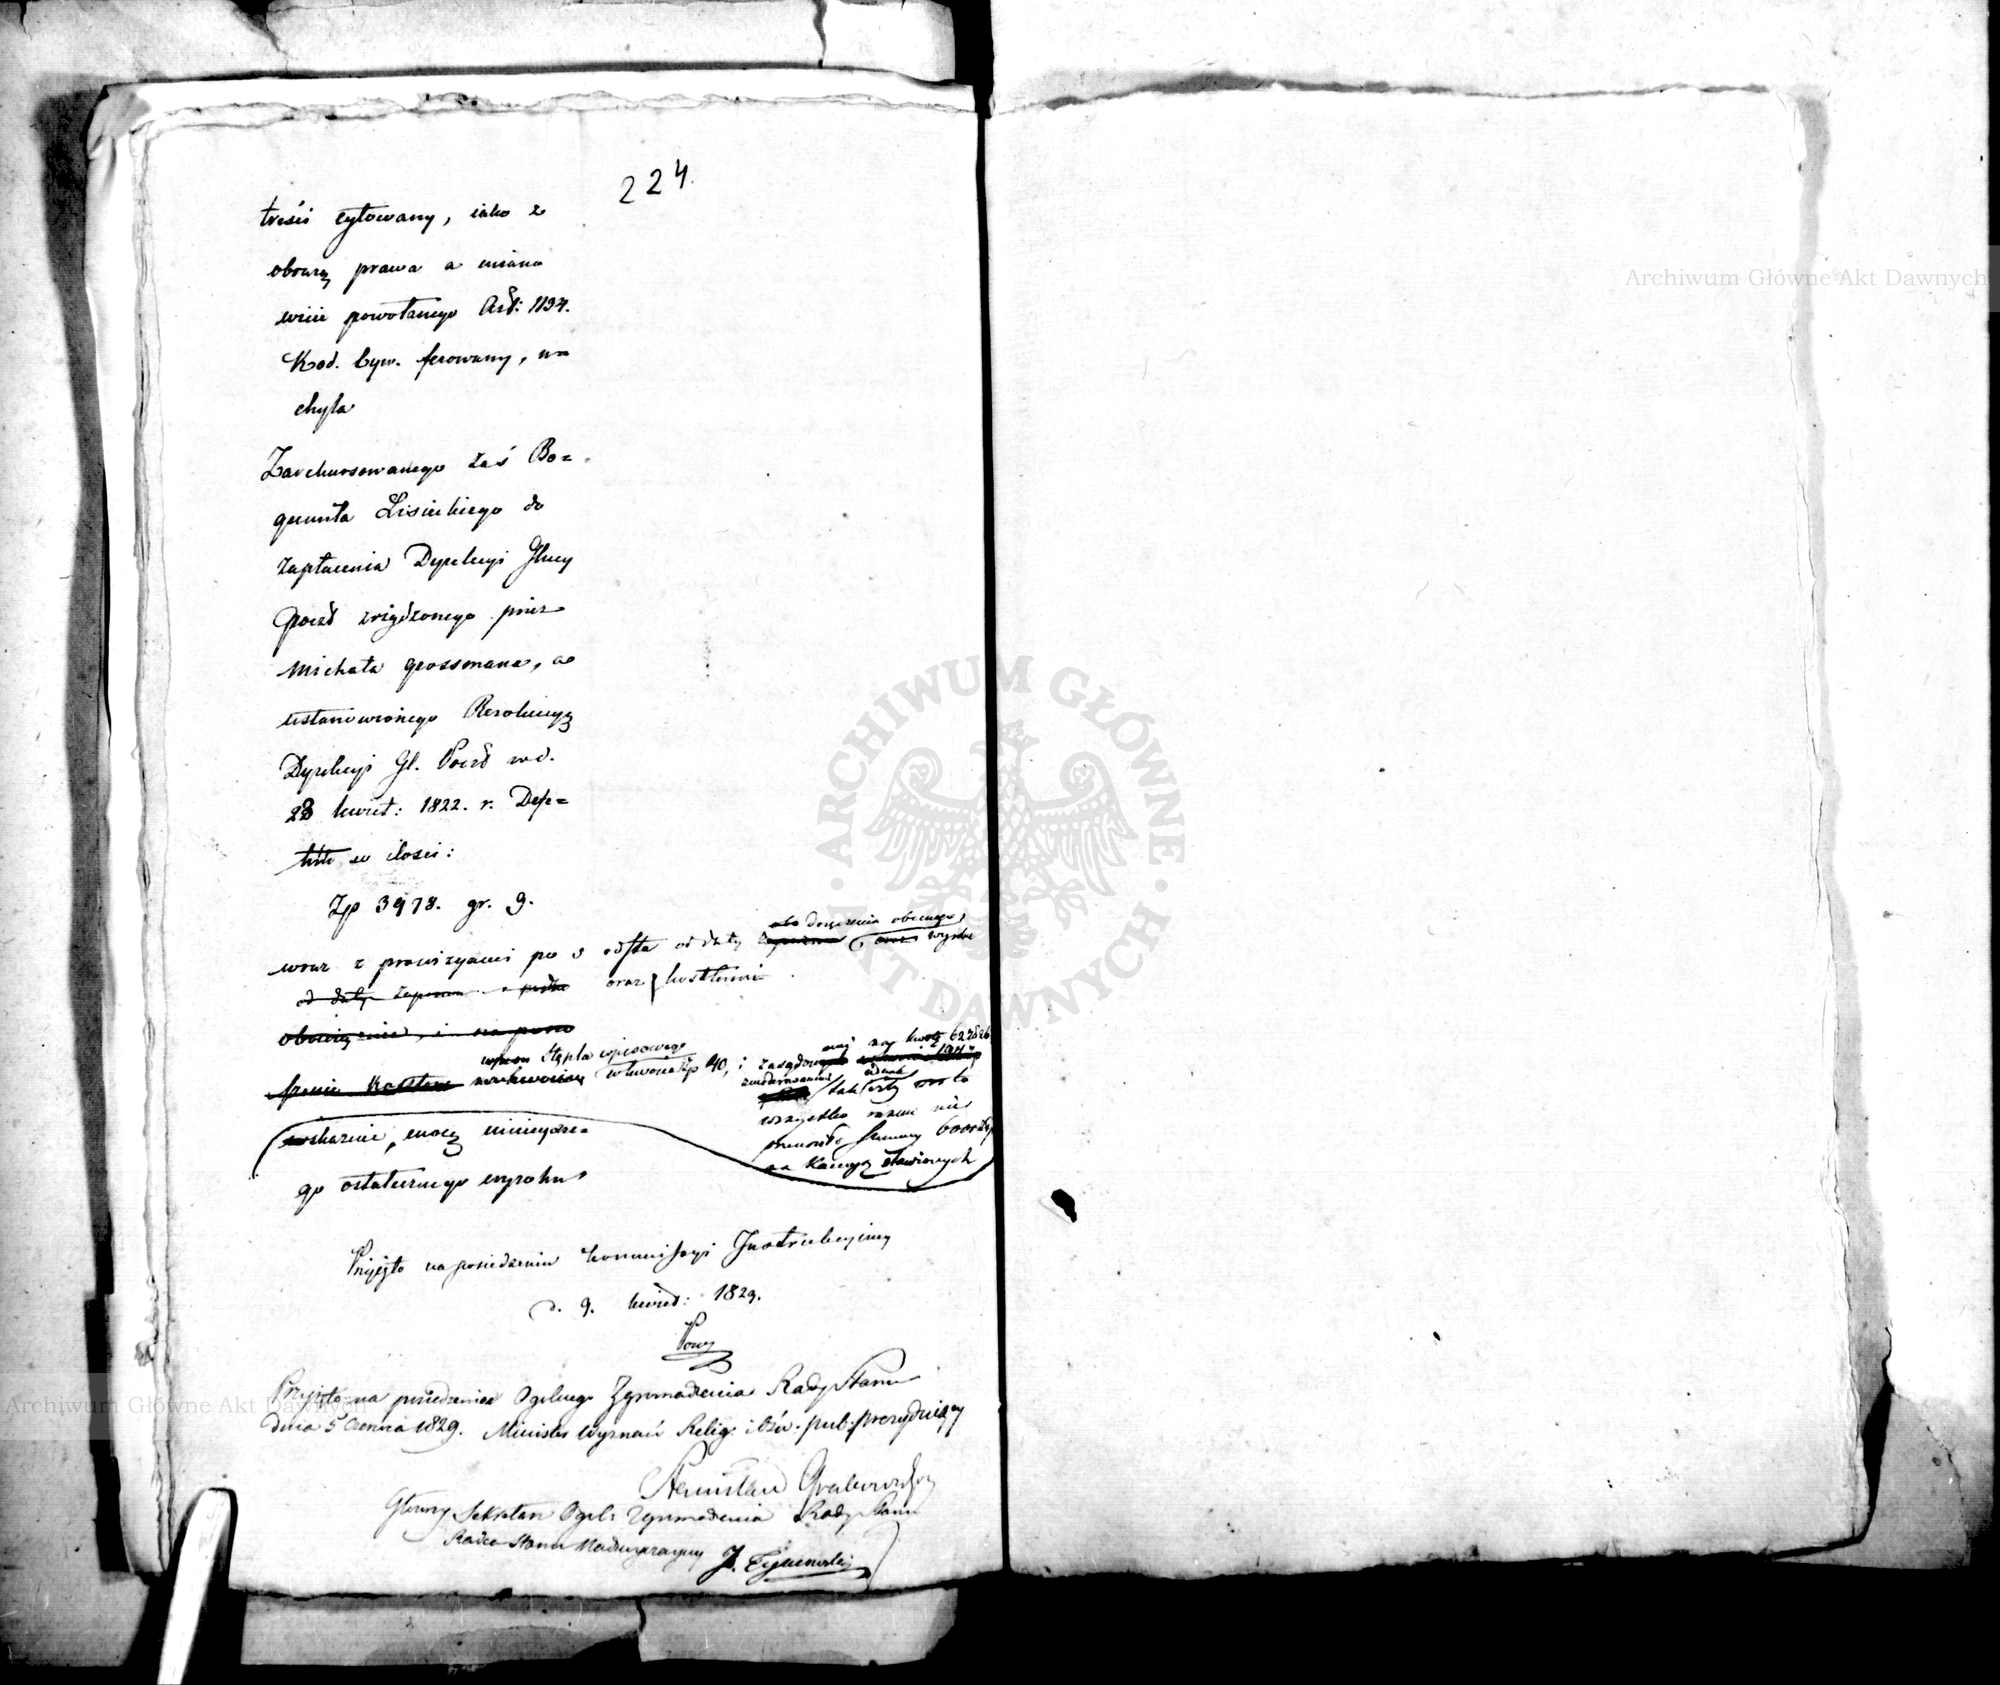 224.
treści cytowany, iako z
obrazą prawa a miano
wicie powołanego Art: 1134.
Kod. Cyw. ferowany, u=
chyla
Zarekursowanego zaś Bo=
gumiła Lisickiego do
zapłacenia Dyrekcyi Główy
Poczt zrządzonego przez
Michała Grossmana, a
ustanowionego Rezolucyą
Dyrekcyi Gł. Poczt w d.
28 kwiet: 1822. r. Defe=
ktu w ilości:
Zp 3978. gr. 9.
wraz z prowizyami po 5 od sta od daty doręczenia obecnego
wyroku
od daty zapozwu oraz kosztami
obowiązanie, i na pono
szenie Kosztów stępla wpisowego w kwocie Zp 40, i zasądzonych
tak iednak
wszystko razem nie
przenosiło Summy 6000 Zp
na Kaucyą stawionych
skazuie, mocą ninieysze=
go ostatecznego wyroku
Przyięto na posiedzeniu Kommissyi Instrukcyiney
d. 9. kwiet: 1829.
Przyięto na posiedzeniu Ogólnego Zgromadzenia Rady Stanu
dnia 5 Czerwca 1829. Minister Wyznań Relig: i Ośw: pub: prezyduiący
Stanisław Grabowski
Główny Sekretarz Ogól: Zgromadzenia Rady Stanu
Radca Stanu Nadzwyczayny J. Tymowski
Archiwum Główne Akt Dawnych
Archiwum Główne Akt Dawnych
ARCHIWUM GŁÓWNE AKT DAWNYCH